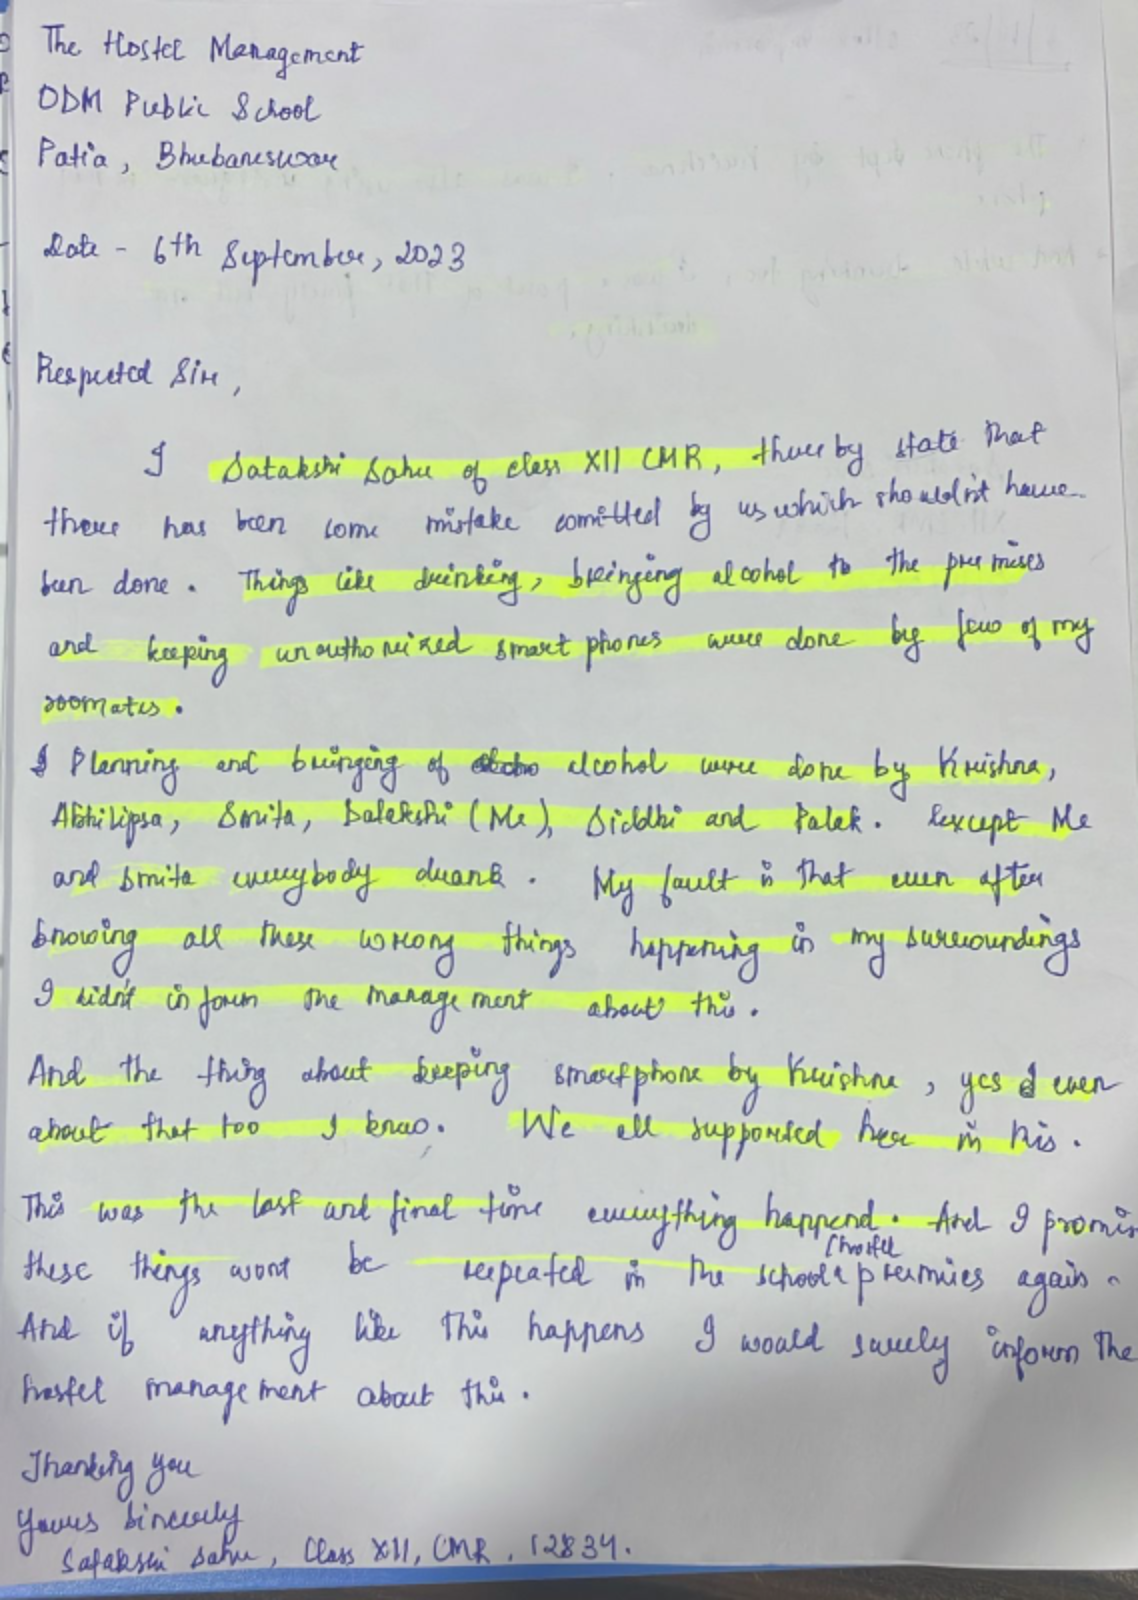 The Hostel Management
ODM Public School
Patia, Bhubaneswar
Date - 6th September, 2023
Respected Sir,
I Satakshi Sahu of class XII CMR, thereby state that
there has been some mistake comitted by us which shouldn't have
been done. Things like drinking, bringing alcohol to the premises
and keeping unauthorized smart phones were done by few of my
roomates.
Planning and bringing of alcohol were done by Krishna,
Abhilipsa, Smita, Satakshi (Me), Siddhi and Palak. Except Me
and Smita everybody drank. My fault is that even after
knowing all these wrong things happening in my surroundings
I didn't inform the management about this.
And the thing about keeping smartphone by Krishna, yes I even
about that too I know. We all supported her in this.
This was the last and final time everything happend. And I promis
these things wont be repeated in the school (hostel premises again.
And if anything like this happens I would surely inform the
hostel management about this.
Thanking you
Yours Sincerely
Satakshi Sahu, Class XII, CMR, 12834.